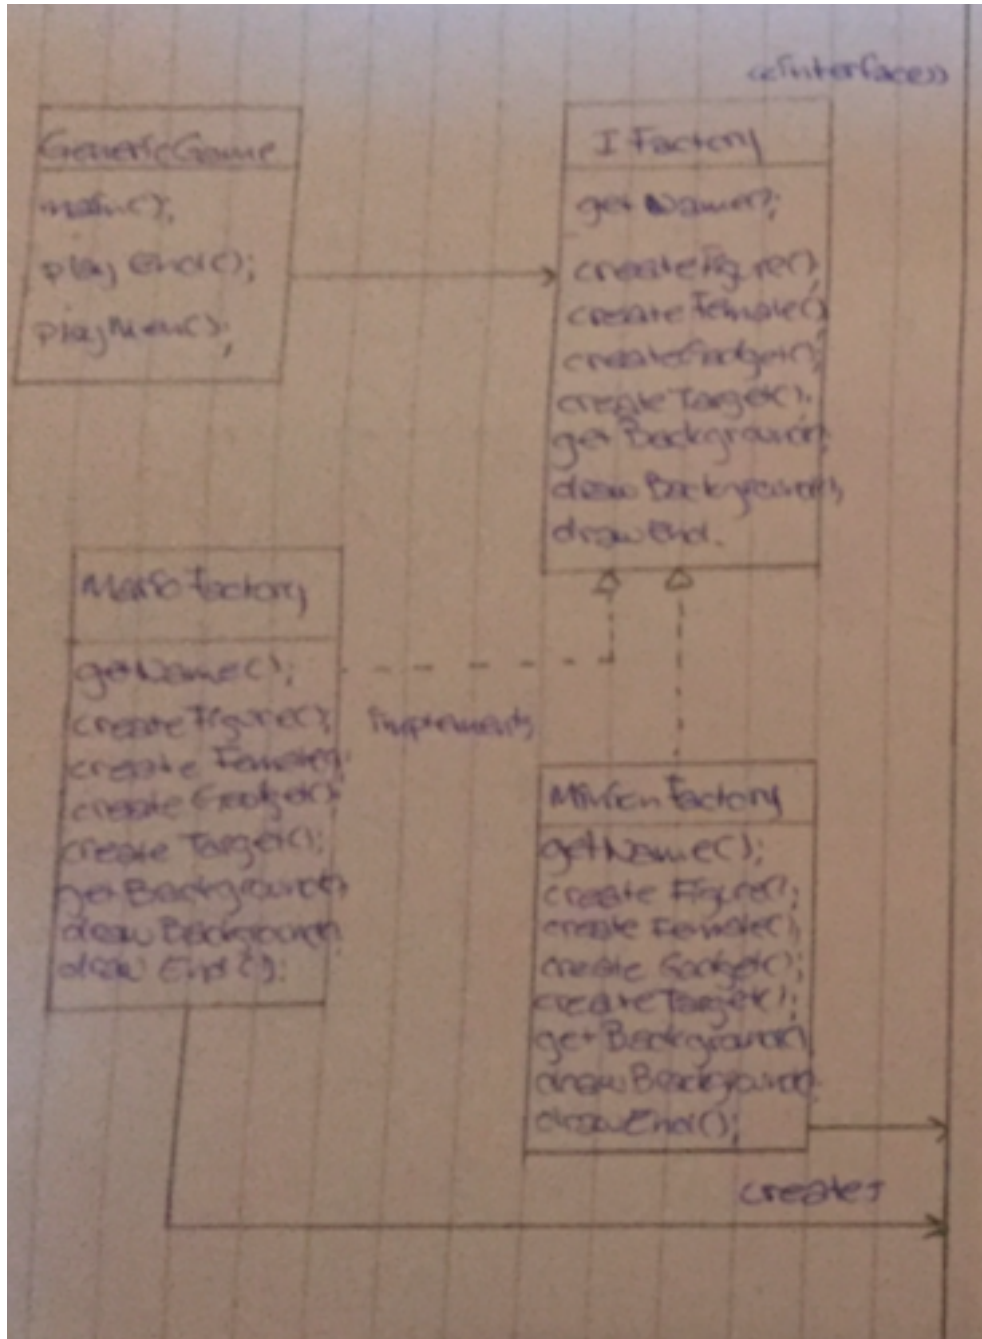 <<interface>>
GenericGame
main();
playEnd();
playMenu();
IFactory
getName();
createFigure();
createFemale();
createGadget();
createTarget();
getBackground();
drawBackground();
drawEnd.
MarioFactory
getName();
createFigure();
create Female();
create Gadget();
create Target();
getBackground();
drawBackground();
draw End();
implements
MinionFactory
getName();
create Figure();
create Female();
create Gadget();
createTarget();
getBackground();
drawBackground();
drawEnd();
creates